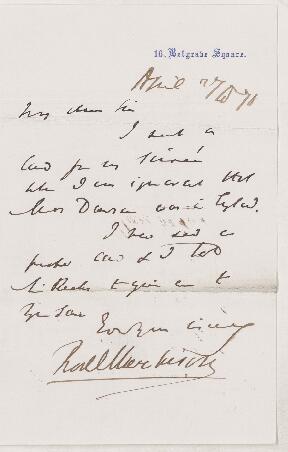 16. Belgrave Square.
April 27/70
My dear Sir
I sent a
Card for my Soirée
when I was ignorant that
Mrs Dawson was in England.
I have sent a
proper card & I told
Mr to give one to
Your Son
Yours sincerely
Rod I Murchison